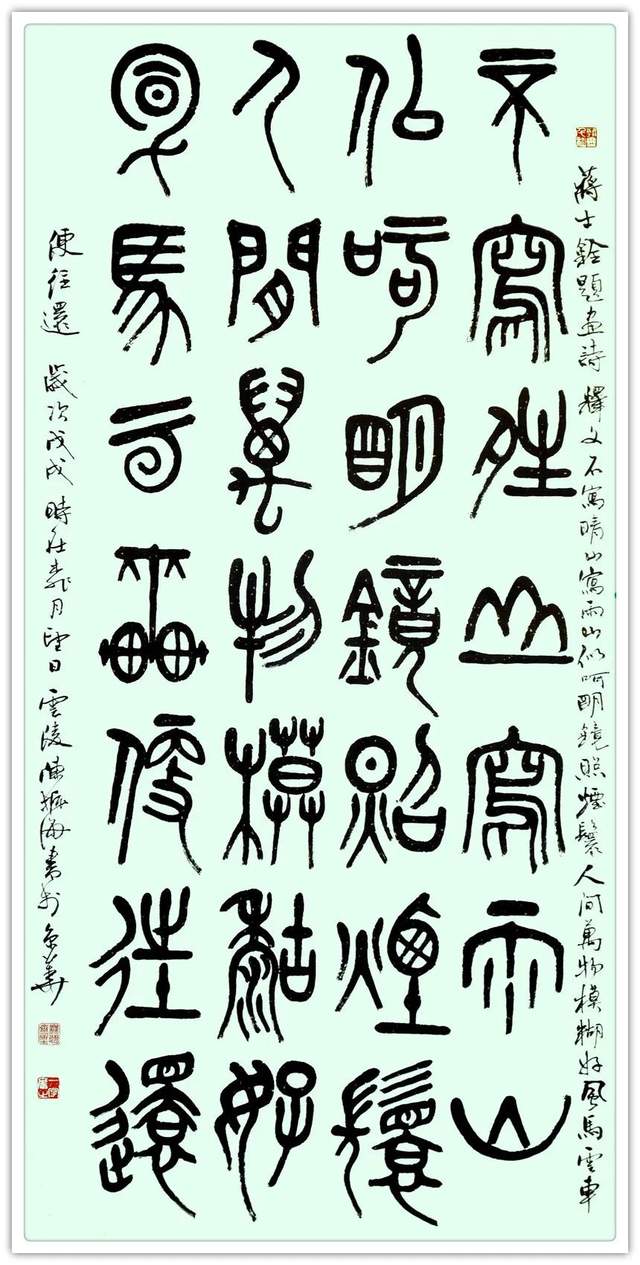 不寫晴山寫雨山
佀呵朙鏡照煙鬟
人間萬物模黏好
風馬雲車便往還
蔣士銓題畫詩 釋文 不寫晴山寫雨山 似呵明鏡照煙鬟 人间萬物模糊好 風馬雲車
便往還 歲次戊戌 時在 月望日 雲陵陳 海書於京華